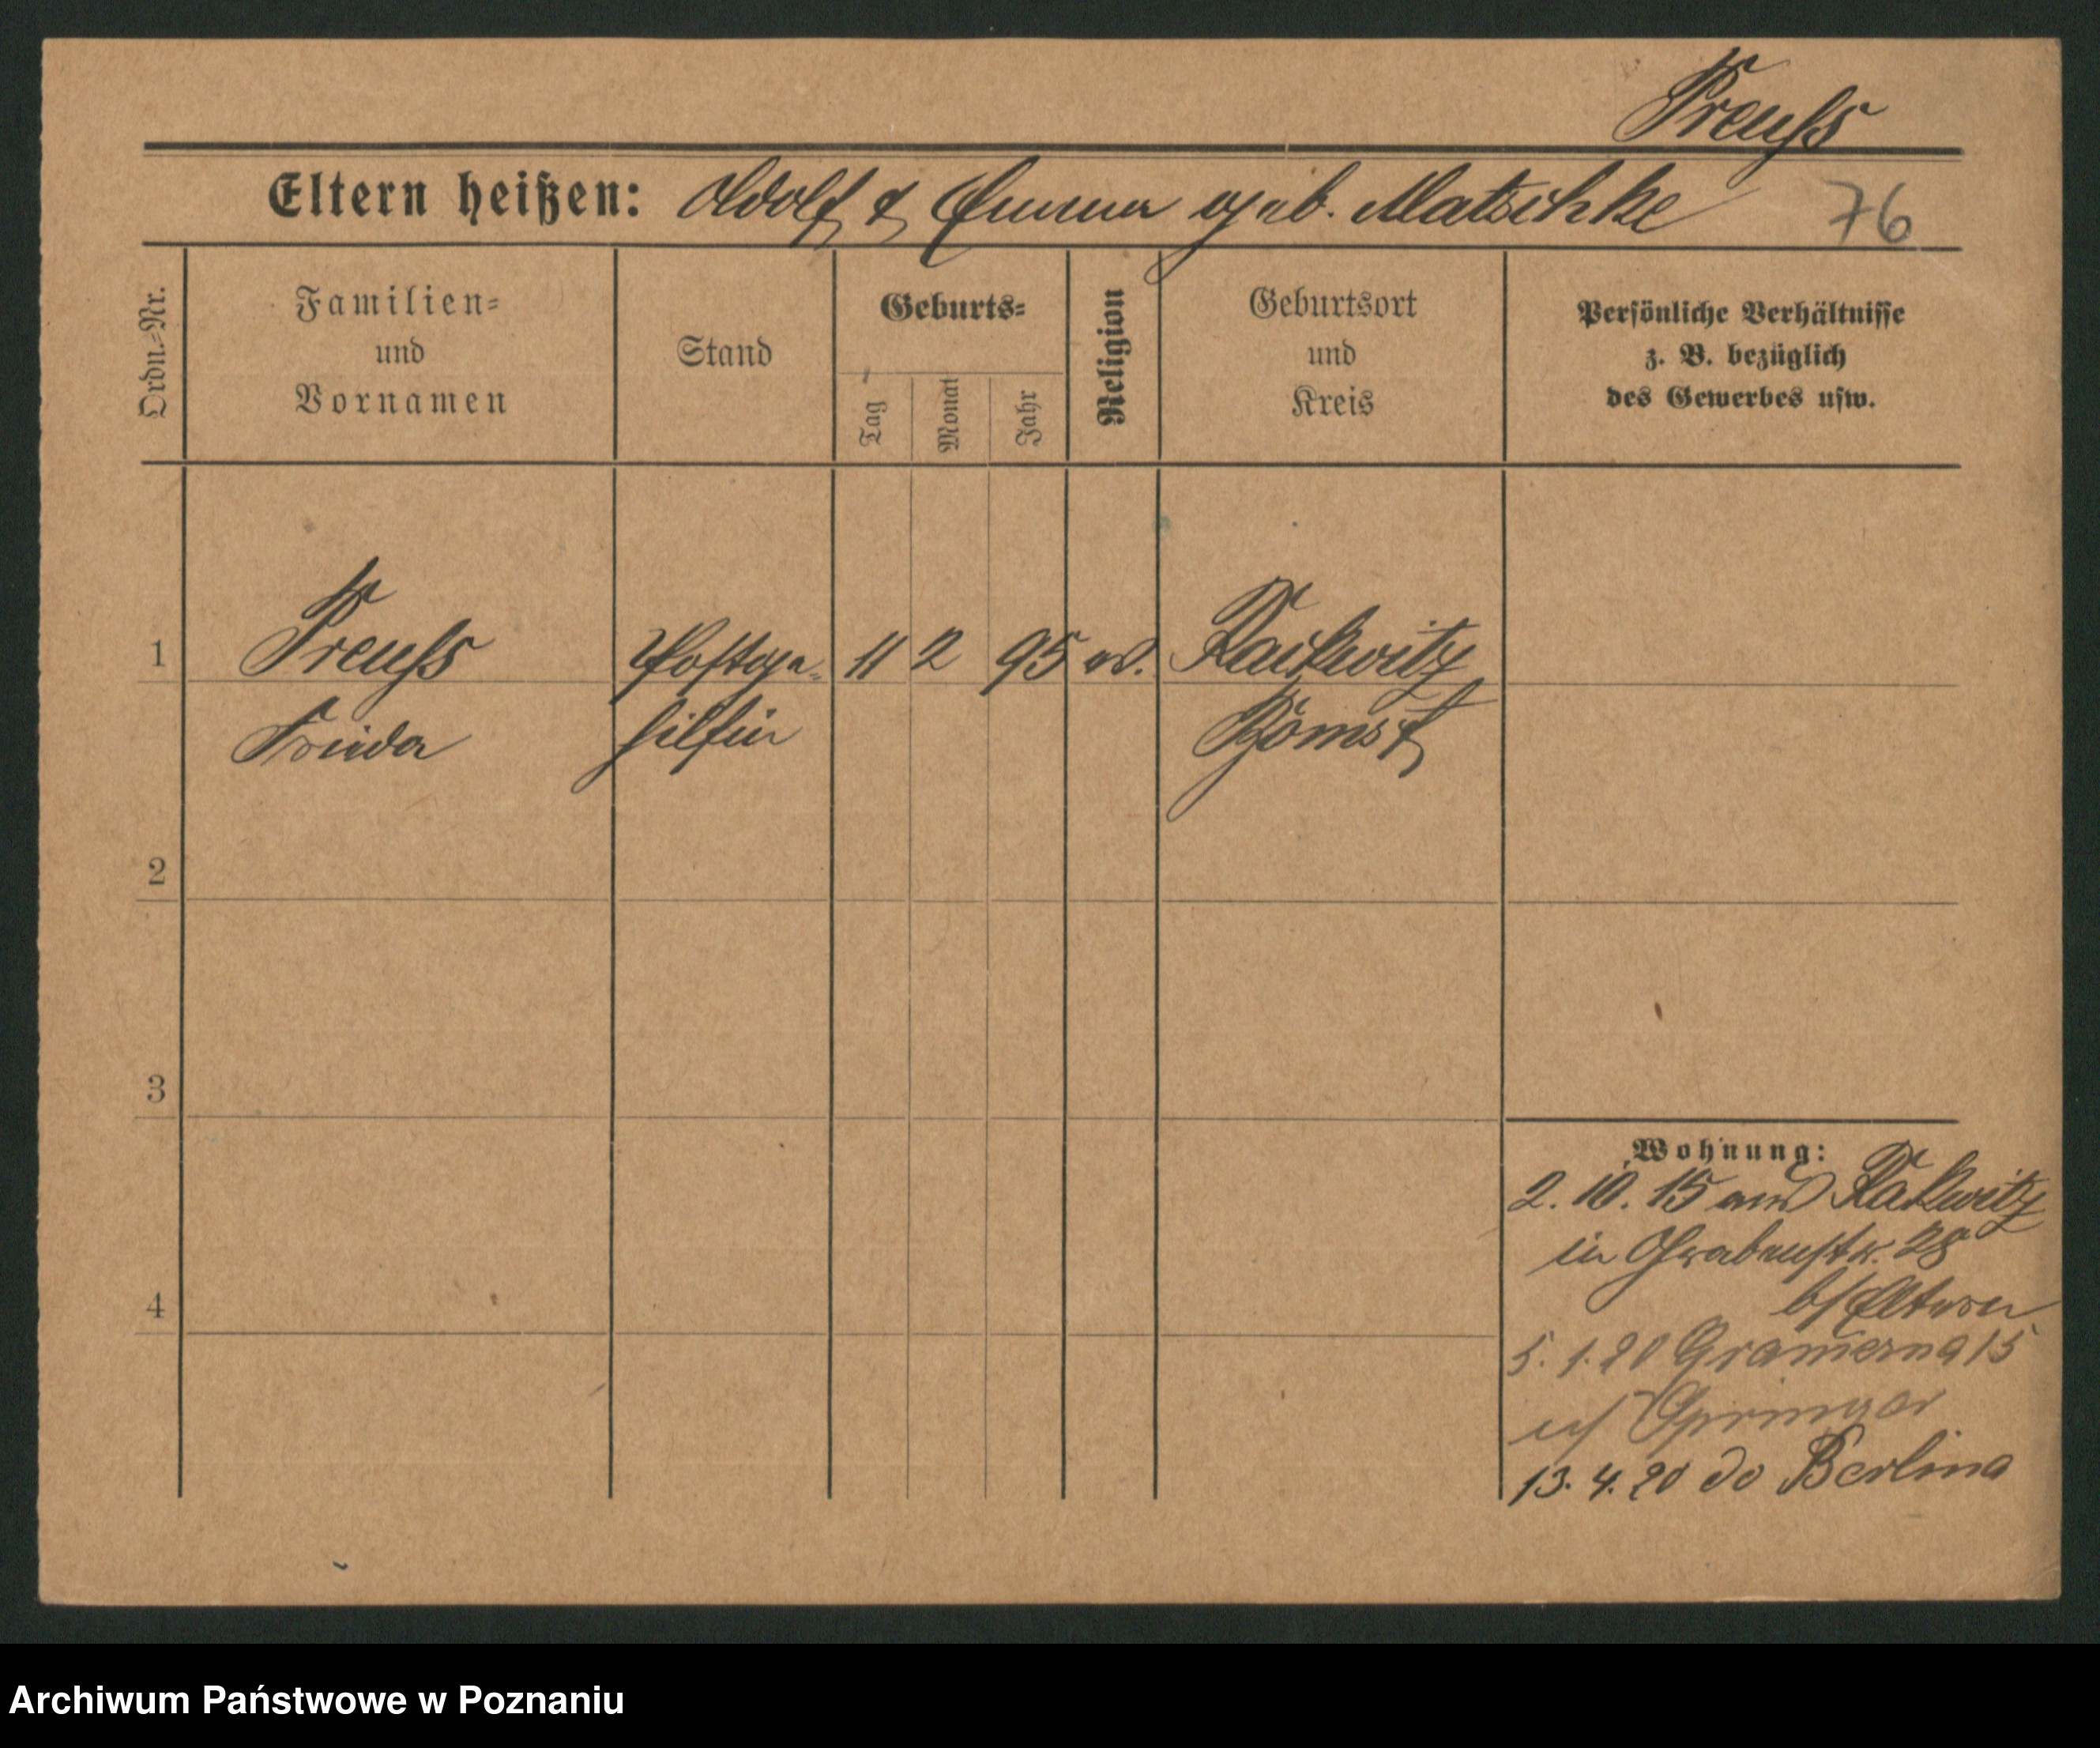 Preuss
Eltern heißen: Adolf & Emma geb. Matschke 76
Ordn.=Nr.
Familien=
und
Vornamen
Stand
Geburts=
Tag
Monat
Jahr
Religion
Geburtsort
und
Kreis
Persönliche Verhältnisse
z. B. bezüglich
des Gewerbes usw.
1 Preuss Postge= 11 2 95 ev. Rackwitz
Frieda hilfin Bomst
2
3
4
Wohnung:
2. 10. 15 aus Rackwitz
in Grabenstr. 28
b/Eltern
5. 1. 20 15
u/ Springer
13. 4. 20 do Berlina
Archiwum Państwowe w Poznaniu